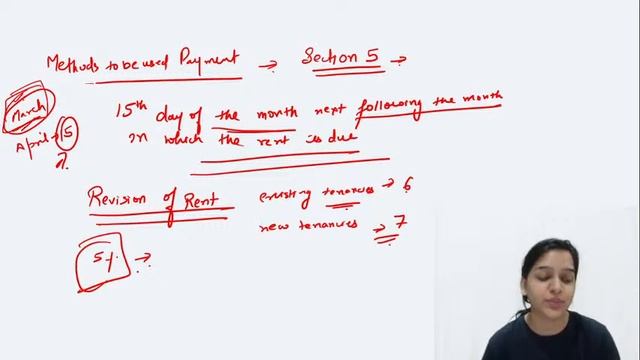 Methods to be used Payment → Section 5 →
March
15th day of the month next following the month
April → 15
in which the rent is due
Revision of Rent
existing tenancies → 6
new tenancies → 7
5%. →